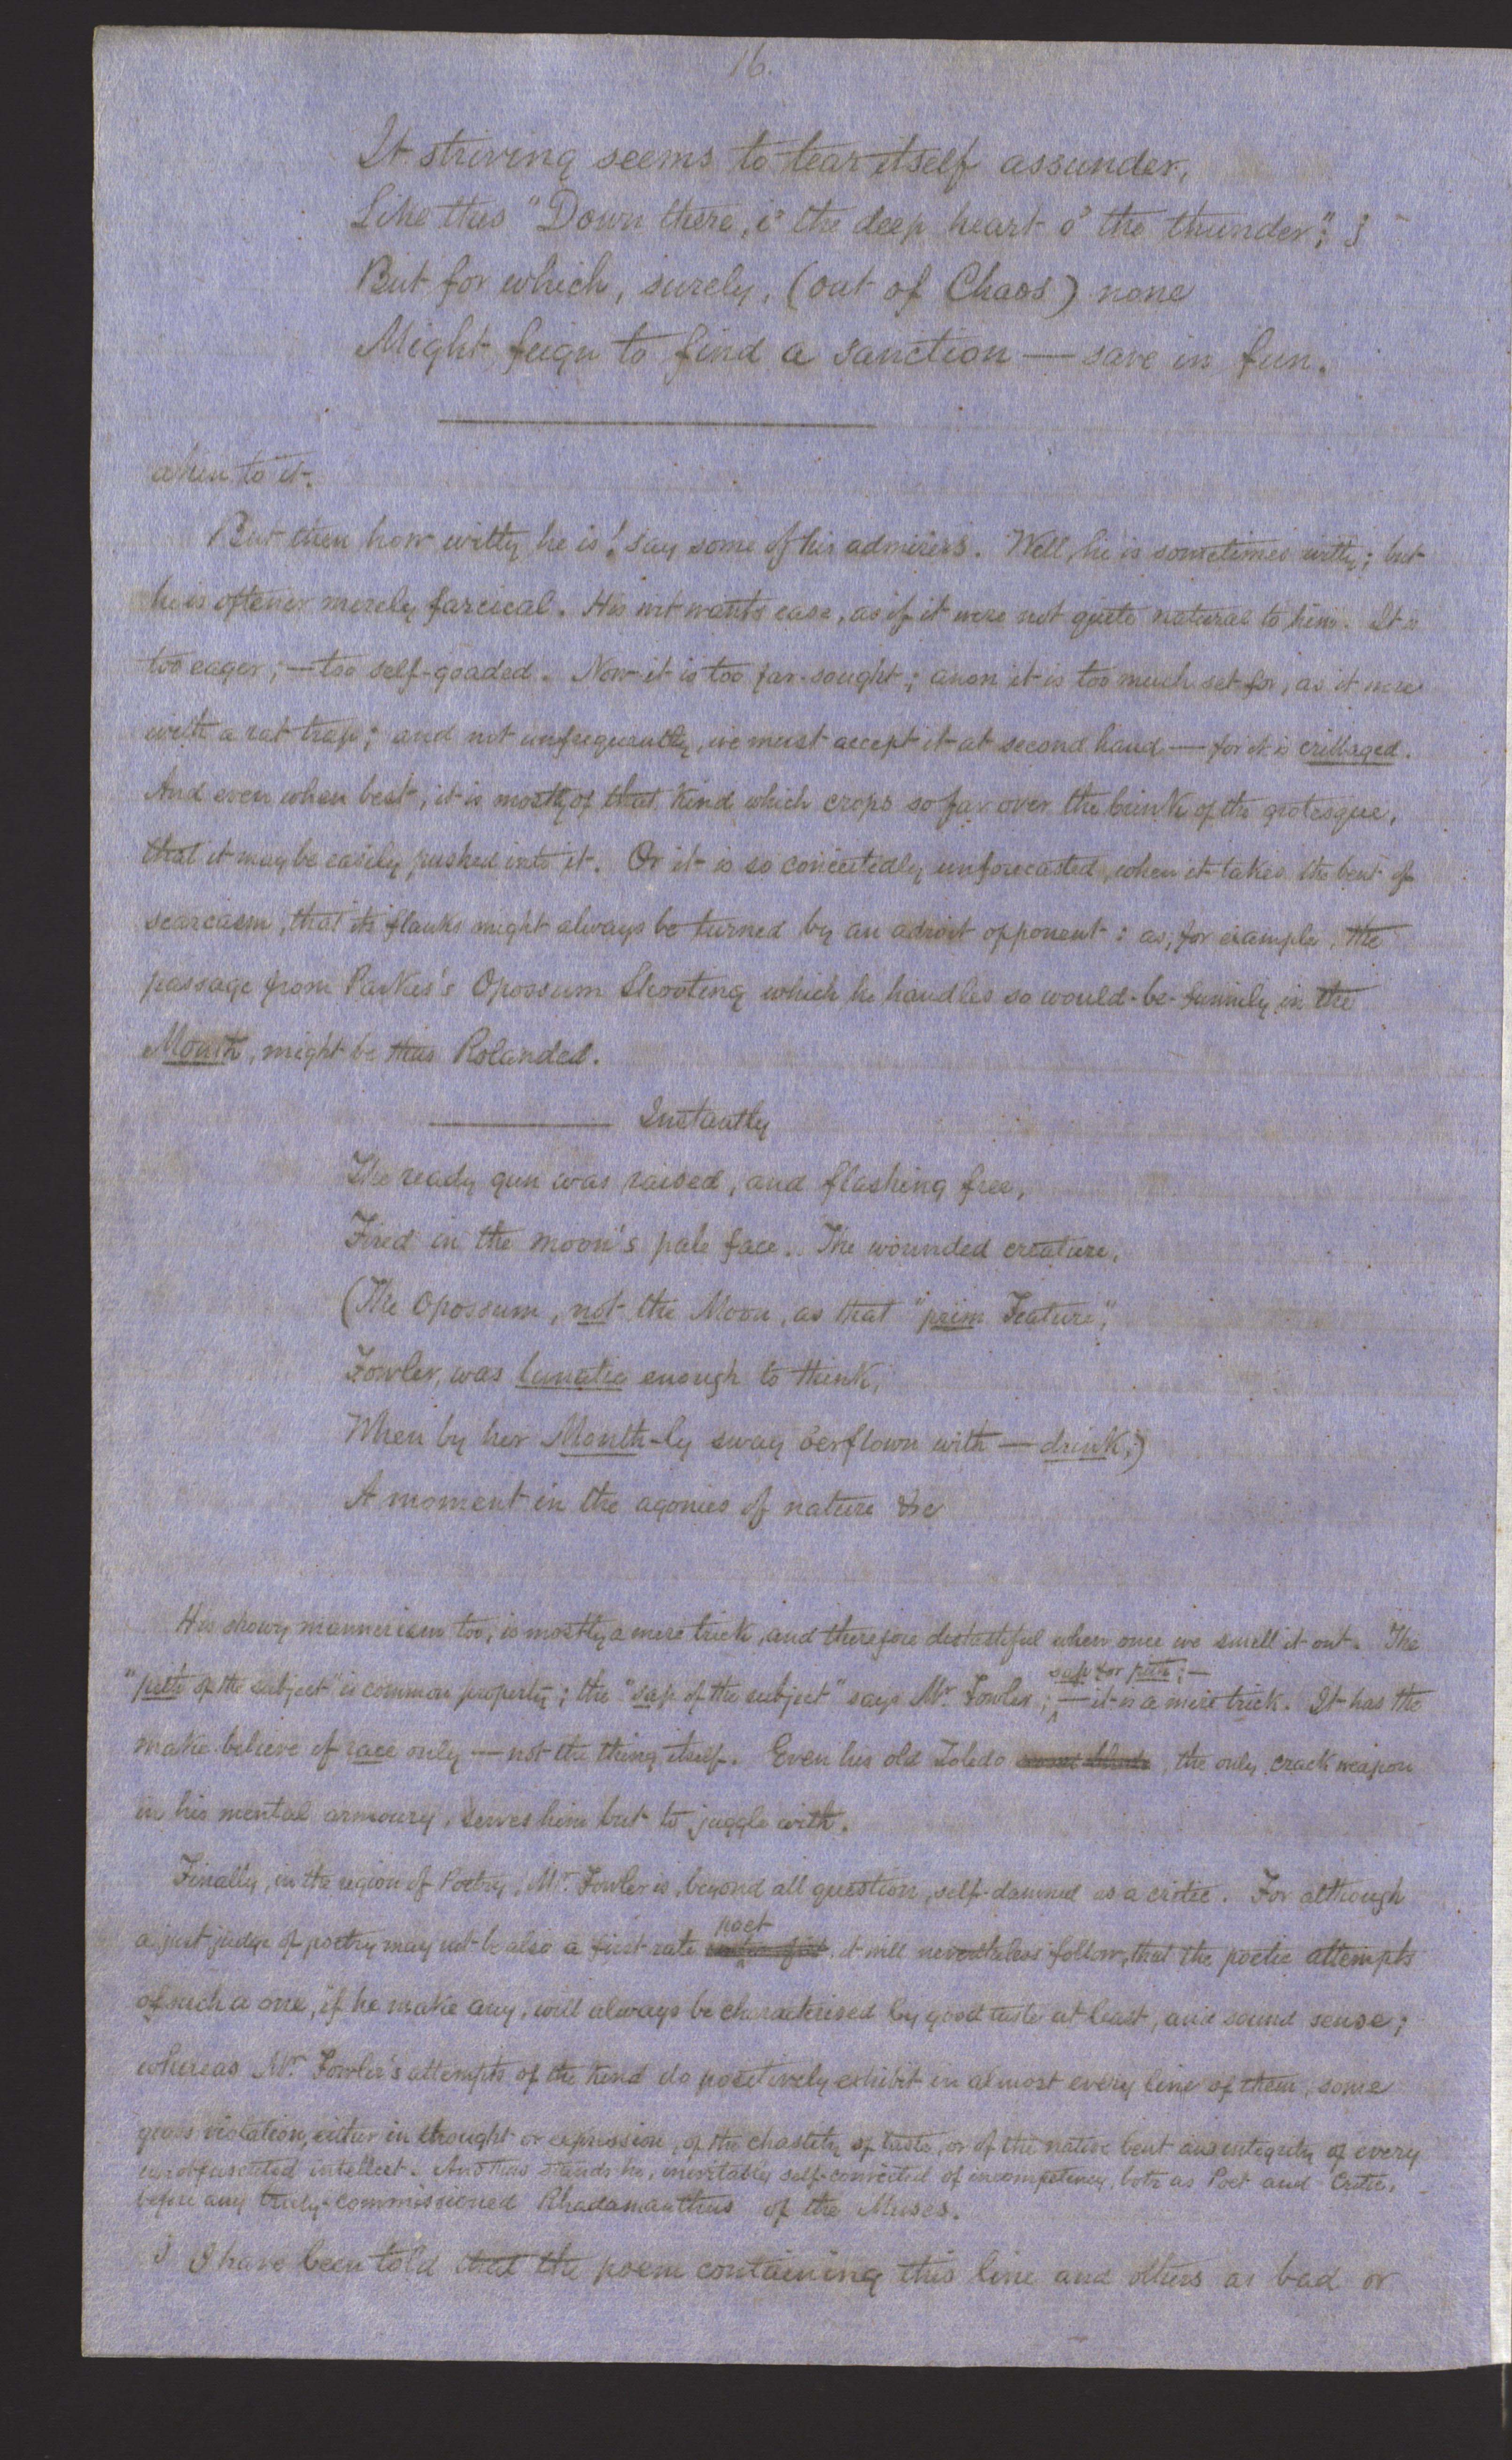 16.
It striving seems to tear itself assunder,
Like this "Down there, i' the deep heart o' the thunder";
But for which, surely, (out of Chaos) none
Might feign to find a sanction — save in fun.
when to it.
But then how witty he is! say some of his admirers. Well, he is sometimes witty; but
he is oftener merely farcical. His wit wants ease, as if it were not quite natural to him. It is
too eager; — too self-goaded. Now it is too far-sought; anon it is too much set for, as it were
with a rat trap; and not unfrequently, we must accept it at second hand — for it is cribbaged.
And even when best, it is mostly of that kind which crops so far over the brink of the grotesque,
that it may be easily pushed into it. Or it is so conceitedly unforecasted, when it takes the bent of
scarcasm, that its flanks might always be turned by an adroit opponent: as, for example, the
passage from Parkes's Opossum Shooting which he handles so would-be-funnily in the
Month, might be thus Rolanded.
Instantly
The ready gun was raised, and flashing free,
Fired in the moon's pale face. The wounded creature,
(The Opossum, not the Moon, as that "prim Feature",
Fowler, was lunatic enough to think,
When by her Month-ly sway oerflown with — drink;)
A moment in the agonies of nature &c
His showy mannerism too, is mostly a mere trick, and therefore distasteful when once we smell it out. The
sap for pith; —
"pith of the subject" is common property; the "sap of the subject" says Mr. Fowler; — it is a mere trick. It has the
make-believe of race only — not the thing itself. Even his old Toledo, the only crack weapon
in his mental armoury, serves him but to juggle with.
Finally, in the region of Poetry, Mr. Fowler is, beyond all question, self-damned as a critic. For although
poet
a just judge of poetry may not be also a first rate, it will nevertheless follow, that the poetic attempts
of such a one, if he make any, will always be characterised by good taste at least, and sound sense;
whereas Mr. Fowler's attempts of the kind do positively exhibit in almost every line of them, some
gross violation, either in thought or expression, of the chastity of taste, or of the native bent and integrity of every
unobfuscated intellect. And thus stands he, inevitably self-convicted of incompetency, both as Poet and Critic,
before any truly-commissioned Rhadamanthus of the Muses.
I have been told that the poem containing this line and others as bad or